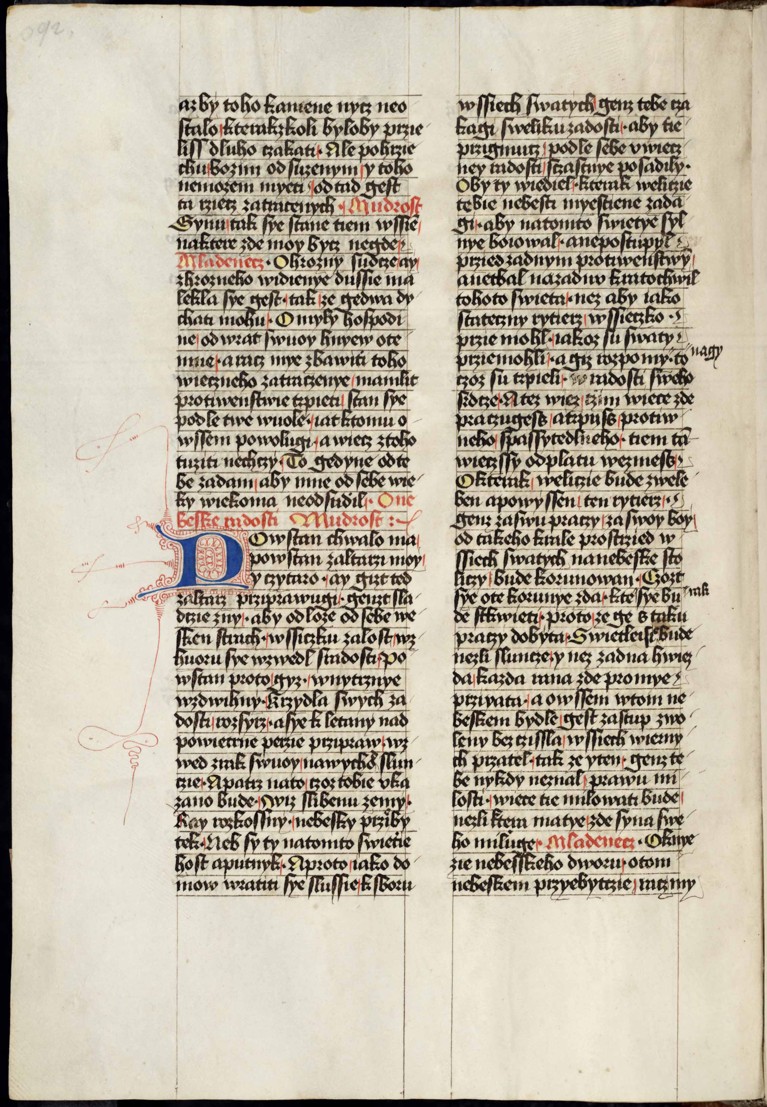 092,
azby toho kamene nytz neo
stalo kterakzkoli byloby przie
liss dluho czakati Ale pohrzie
chu bozim odsuzenym y toho
nemozem myeti od tad gest
ta rzietz zatratenych Mudrost
Synu tak sye stane tiem wssie
naktere zde moy bytz negde
Mladenetz Ohrozny sudtze ay
zhrozneho widienye dussie ma
lekla sye gest tak ze gedwa dy
chati mohu O myly hospodi
ne od wrat swuoy hnyew ote
mne a racz mye zbawiti toho
wietzneho zatratzenye mamlit
protiwenstwie trpieti stan sye
podle twe wuole iat ktomu o
wssem powolugi a wietz ztoho
tuziti nechtzy To gedyne odte
be zadam aby mne od sebe wie
ky wiekoma neodsudil One
beske radosti Mudrost
Powstan chwalo ma
powstan zaltarzi moy
y czytaro ay gizt ted
zaltarz prziprawugi genzt sla
dtzie zny aby od loze od sebe we
sken strach wssitzku zalost wz
huoru sye wzwedl stradosti Po
wstan proto gyz wnytrznye
wzdwihny krzydla swych za
dosti rozsyrz a sye k letany nad
powietrne perzie przipraw wz
wed zrak swuoy nawychod slun
tzie A patrz nato tzoz tobie vka
zano bude wiz slibenu zemy
Ray rozkossny nebesky przyby
tek Neb sy ty natomto swietie
host a putnyk A proto iako do
mow wratiti sye slussie k sboru
wssiech swatych genz tebe cza
kagi sweliku zadosti aby tie
przigmutz podle sebe v wietz
ney radosti stzastnye posadily
Oby ty wiediel kterak welitzie
tebie nebesti myestiene zada
gi aby natomto swietye syl
nye boiowal a nepostupyl
przied zadnym protiwenstwy
a netbal na zadnu kratochwil
tohoto swieta nez aby iako
statetzny rytierz wssietzko
przie mohl iakoz su swaty
przie mohli a giz rozpomy to nagy
tzoz su trpieli w radosti sweho
srdtze A tez wiez tzim wiete zde
pratzugess a trpijss protiw
neho spassytedlneho tiem ta
wietzssy odplatu wezmess
O kterak welitzie bude zwele
ben a powyssen ten rytierz
genz za swu pratzy za swoy boy
od takeho krale prostrzied w
ssiech swatych na nebeske sto
litzy bude korunowan Tzozt
sye o te korunye zda kte sye bu rak
de stkwieti proto ze ge s taku
pratzy dobyta Swietleissi bude
nezli sluntze y nez zadna hwiez
da kazda rana zde pro mye
przigata a owssem w tom ne
beskem bydle gest zastup zwo
leny bez tzissla wssiech wierny
ch przatel tak ze y ten genz te
be nykdy neznal prawu mi
losti wiete tie milowati bude
nezli ktera matye zde syna swe
ho miluge Mladenetz O knye
zie nebesskeho dworu o tom
nebeskem przyebytzie ratz my